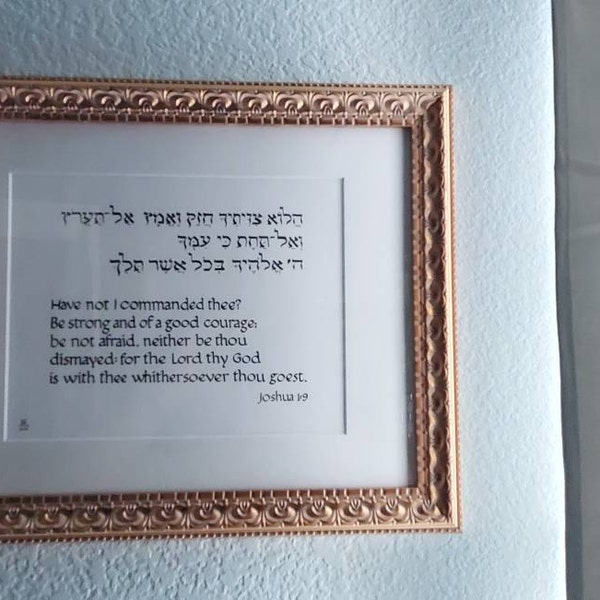 הֲלוֹא צִוִּיתִיךָ חֲזַק וֶאֱמָץ אַל־תַּעֲרֹץ
וְאַל־תֵּחָת כִּי עִמְּךָ
ה׳ אֱלֹהֶיךָ בְּכֹל אֲשֶׁר תֵּלֵךְ
Have not I commanded thee?
Be strong and of a good courage;
be not afraid, neither be thou
dismayed: for the Lord thy God
is with thee whithersoever thou goest.
Joshua 1:9